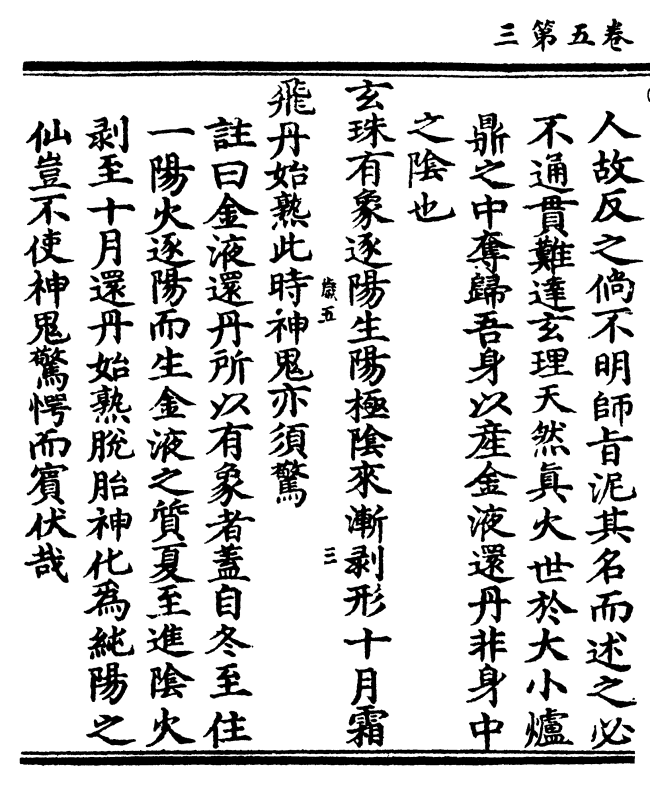 三第五卷
人故反之倘不明師旨泥其名而述之必
不通貫難達玄理天然真火世於大小爐
鼎之中奪歸吾身以產金液還丹非身中
之陰也
玄珠有象逐陽生陽極陰來漸剥形十月霜
歲五
三
飛丹始熟此時神鬼亦須驚
註曰金液還丹所以有象者蓋自冬至住
一陽火逐陽而生金液之質夏至進陰火
剥至十月還丹始熟脫胎神化爲純陽之
仙豈不使神鬼驚愕而賓伏哉